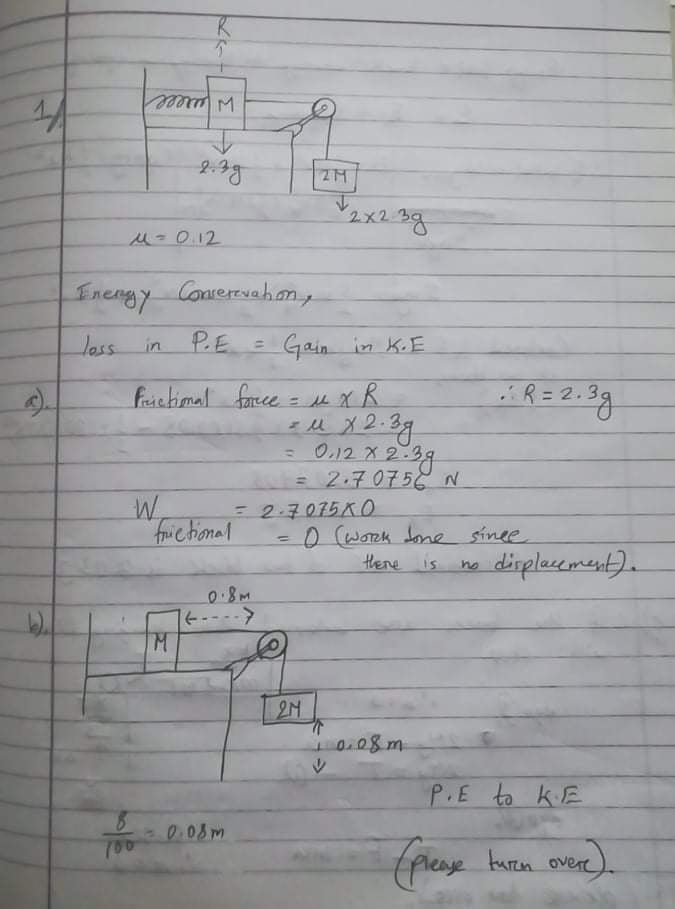 R
1/
M
2.3g
2M
2×2.3g
μ = 0.12
Energy Conserevation,
loss in P.E = Gain in K.E
a). Frictional force = μ × R ∴ R = 2.3g
= μ × 2.3g
= 0.12 × 2.3g
= 2.70756 N
W frictional = 2.7075×0
= 0 (work done since
there is no displacement).
b).
0.8m
M
2M
0.08m
P.E to K.E
8/100 = 0.08m
(please turn over).